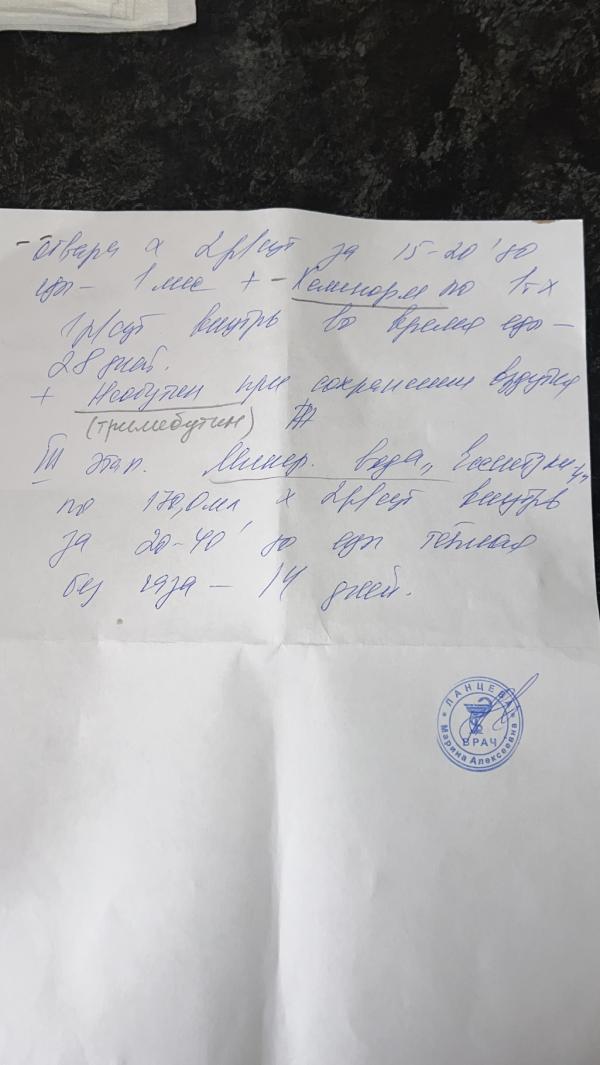 - отвара х 2р/сут за 15-20' до
еды - 1 мес + - по 1т х
1р/сут. внутрь во время еды -
28 дней.
+ Необутин при сохранении вздутия
(тримебутин)
III этап. Минер. вода „Ессентуки
по 170,0мл х 2р/сут внутрь
за 20-40' до еды тёплая
без газа - 14 дней.
ЛАНЦЕВА
ВРАЧ
Марина Алексеевна